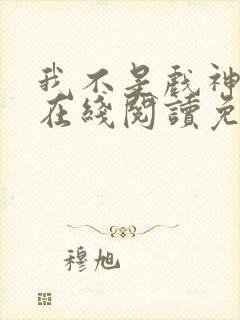 我不是戲神
在綫閱讀免
穆旭